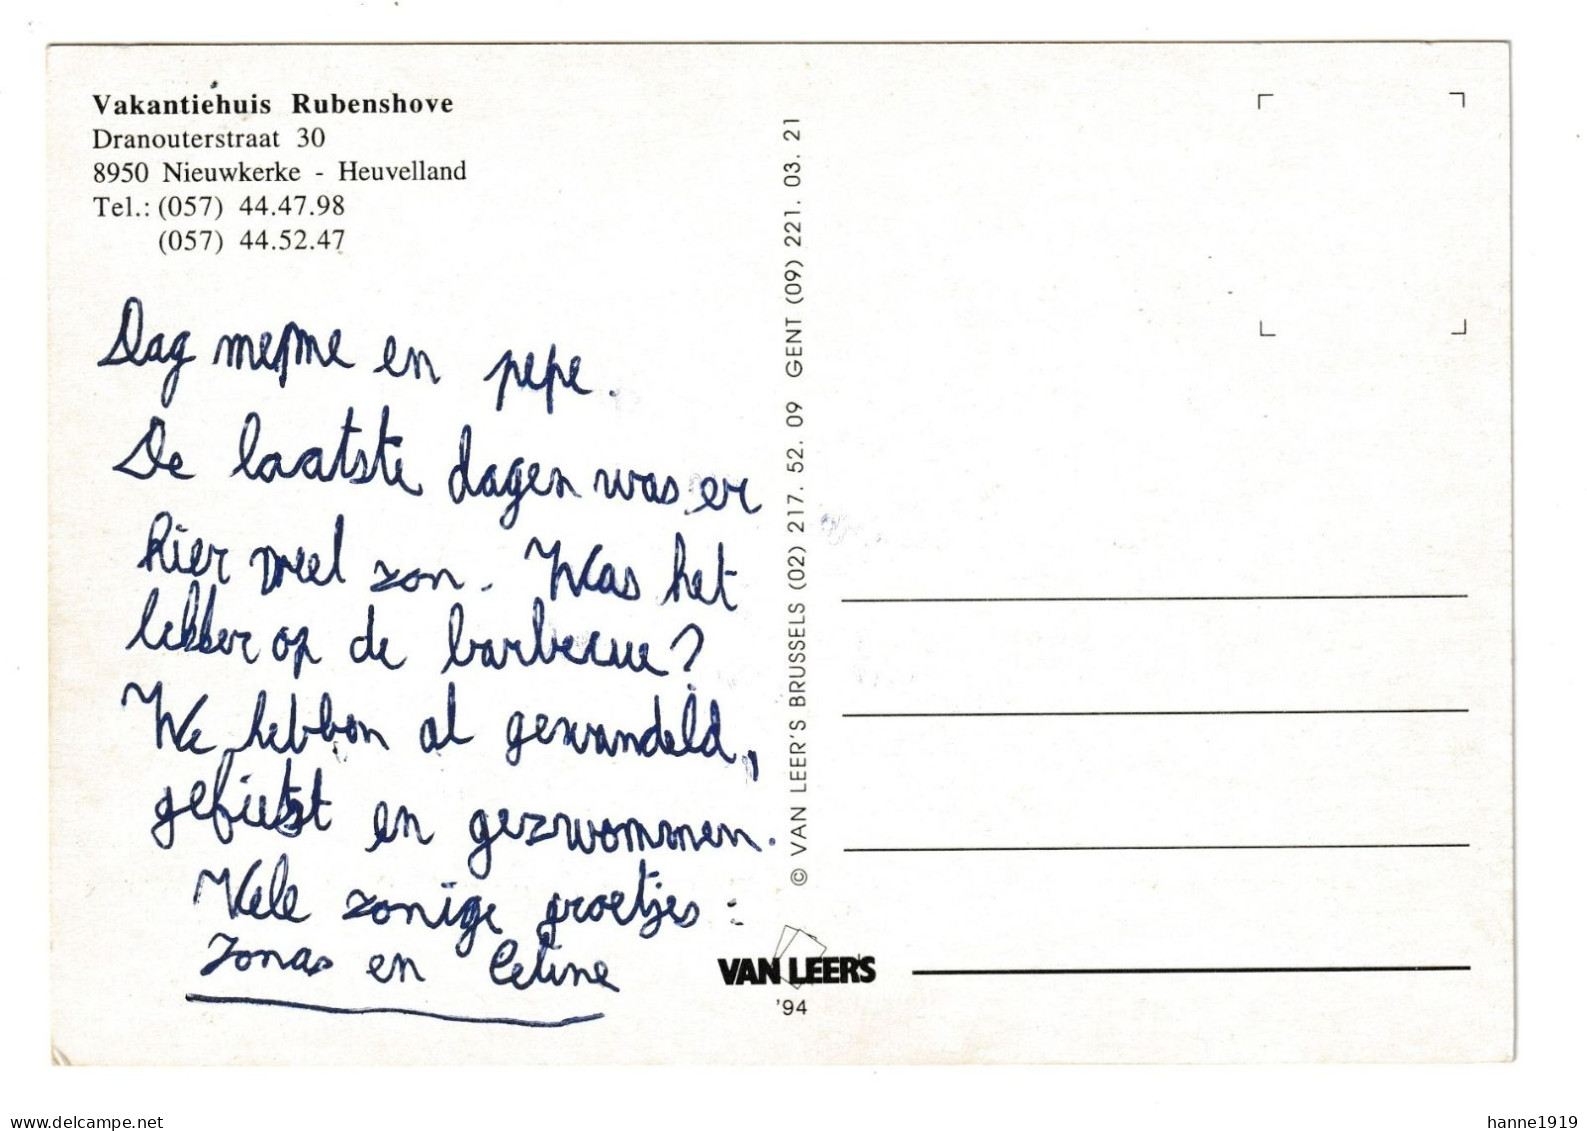 Vakantiehuis Rubenshove
Dranouterstraat 30
8950 Nieuwkerke - Heuvelland
Tel.: (057) 44.47.98
(057) 44.52.47
Dag meme en pepe.
De laatste dagen was er
hier veel zon. Was het
lekker op de barbecue?
We hebben al gewandeld,
gefietst en gezwommen.
Vele zonige groetjes :
Jonas en Celine
© VAN LEER'S BRUSSELS (02) 217. 52. 09 GENT (09) 221. 03. 21
VAN LEER'S
'94
www.delcampe.net
hanne1919